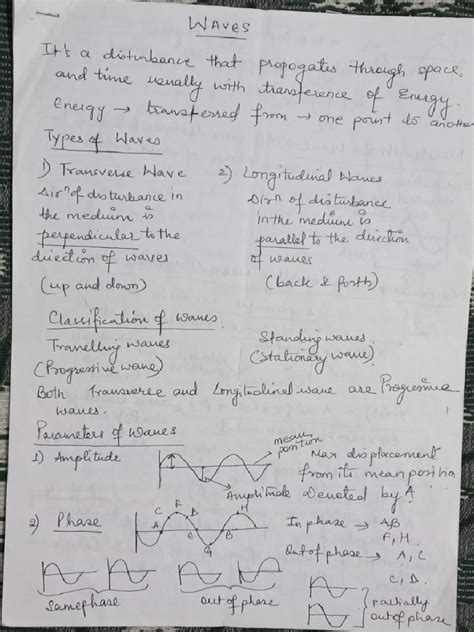 WAVES
It's a disturbance that propogates through space
and time usually with transference of Energy.
Energy → transferred from → one point to another
Types of Waves
1) Transverse Wave
Dirⁿ of disturbance in
the medium is
perpendicular to the
direction of waves.
(up and down)
2) Longitudinal Waves
Dirⁿ of disturbance
in the medium is
parallel to the direction
of waves
(back & forth)
Classification of waves
Travelling waves
(Progressive wave)
Standing waves
(Stationary wave)
Both Transverse and Longitudinal wave are Progressive
waves.
Parameters of Waves
1) Amplitude
mean
position
Amplitude
Max displacement
from its mean position
Denoted by A.
2) Phase
C F D H
A E B
G
In phase → A,B
F, H
Out of phase → A, C
C, D.
Same phase
out of phase
partially
out of phase